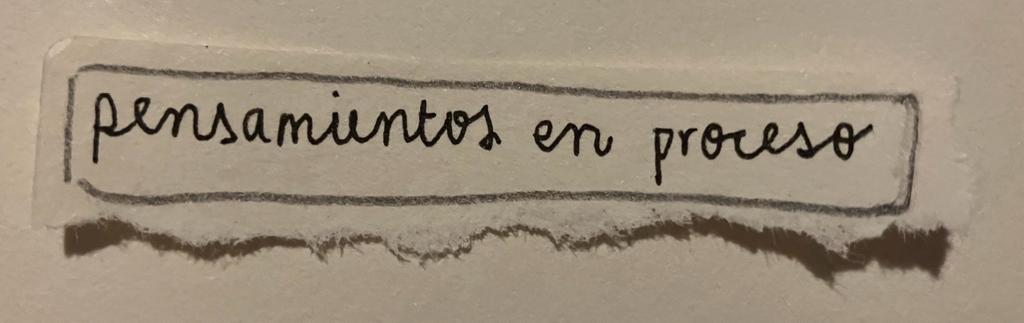 pensamientos en proceso